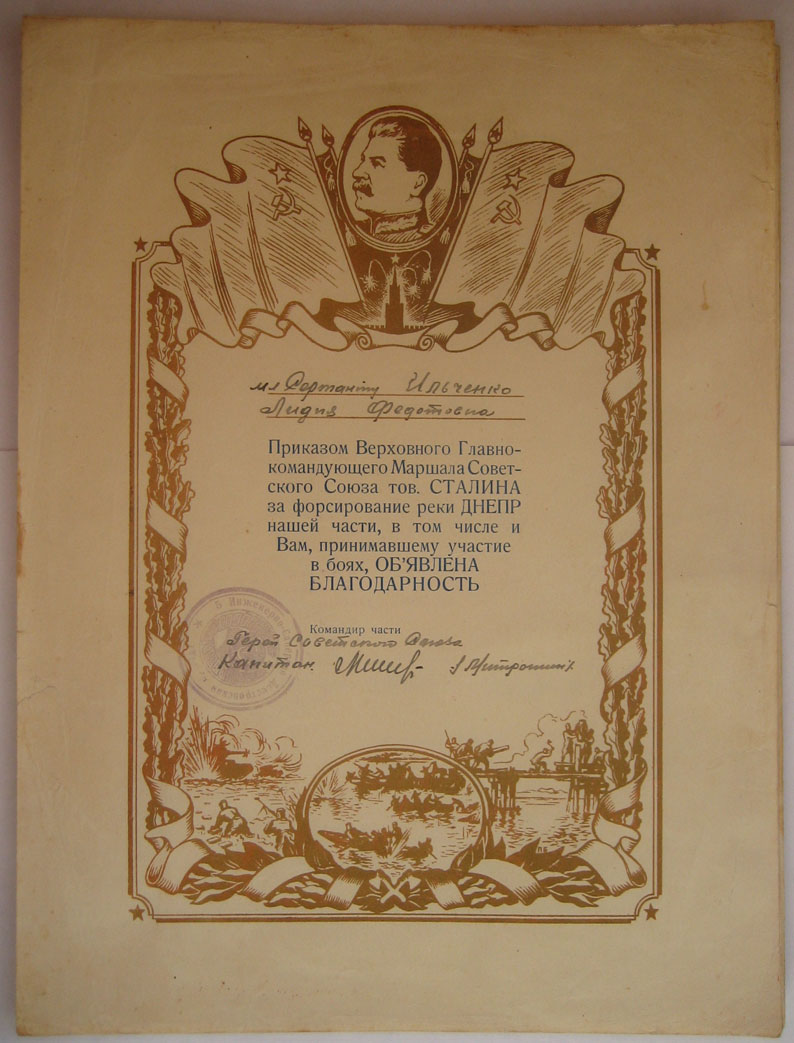 мл Сержанту Ильченко
Лидия Федотовна
Приказом Верховного Главно-
командующего Маршала Совет-
ского Союза тов. СТАЛИНА
за форсирование реки ДНЕПР
нашей части, в том числе и
Вам, принимавшему участие
в боях, ОБ'ЯВЛЕНА
БЛАГОДАРНОСТЬ
Командир части
Герой Советского Союза
Капитан